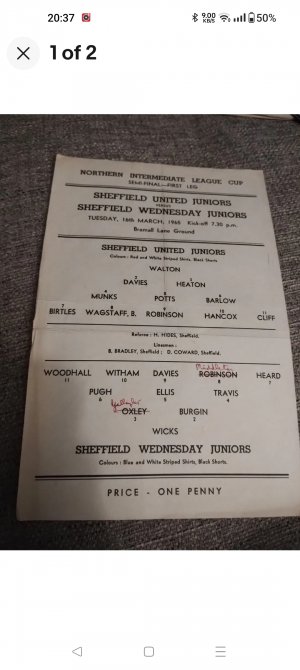 20:37
9.00 KB/S
50%
1 of 2
NORTHERN INTERMEDIATE LEAGUE CUP
SEMI-FINAL—FIRST LEG
SHEFFIELD UNITED JUNIORS
VERSUS
SHEFFIELD WEDNESDAY JUNIORS
TUESDAY, 16th MARCH, 1965 Kick-off 7.30 p.m.
Bramall Lane Ground
SHEFFIELD UNITED JUNIORS
Colours : Red and White Striped Shirts, Black Shorts
WALTON
2 3
DAVIES HEATON
4 5 6
MUNKS POTTS BARLOW
7 8 9 10 11
BIRTLES WAGSTAFF, B. ROBINSON HANCOX CLIFF
Referee : H. HIDES, Sheffield.
Linesmen -
B. BRADLEY, Sheffield ; D. COWARD, Sheffield.
WOODHALL WITHAM DAVIES ROBINSON HEARD
11 10 9 8 7
PUGH ELLIS TRAVIS
6 5 4
Gallagher
OXLEY BURGIN
3 2
WICKS
SHEFFIELD WEDNESDAY JUNIORS
Colours : Blue and White Striped Shirts, Black Shorts.
PRICE - ONE PENNY